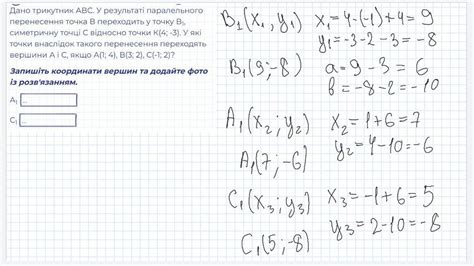 Дано трикутник АВС. У результаті паралельного
перенесення точка В переходить у точку В₁,
симетричну точці С відносно точки К(4; -3). У які
точки внаслідок такого перенесення переходять
вершини А і С, якщо А(1; 4), В(3; 2), С(-1; 2)?
Запишіть координати вершин та додайте фото
із розв'язанням.
A₁
C₁
B₁(x₁, y₁) x₁=4-(-1)+4=9
y₁=-3-2-3=-8
B₁(9;-8) a=9-3=6
b=-8-2=-10
A₁(x₂; y₂) x₂=1+6=7
y₂=4-10=-6
A₁(7;-6)
C₁(x₃; y₃) x₃=-1+6=5
y₃=2-10=-8
C₁(5;-8)